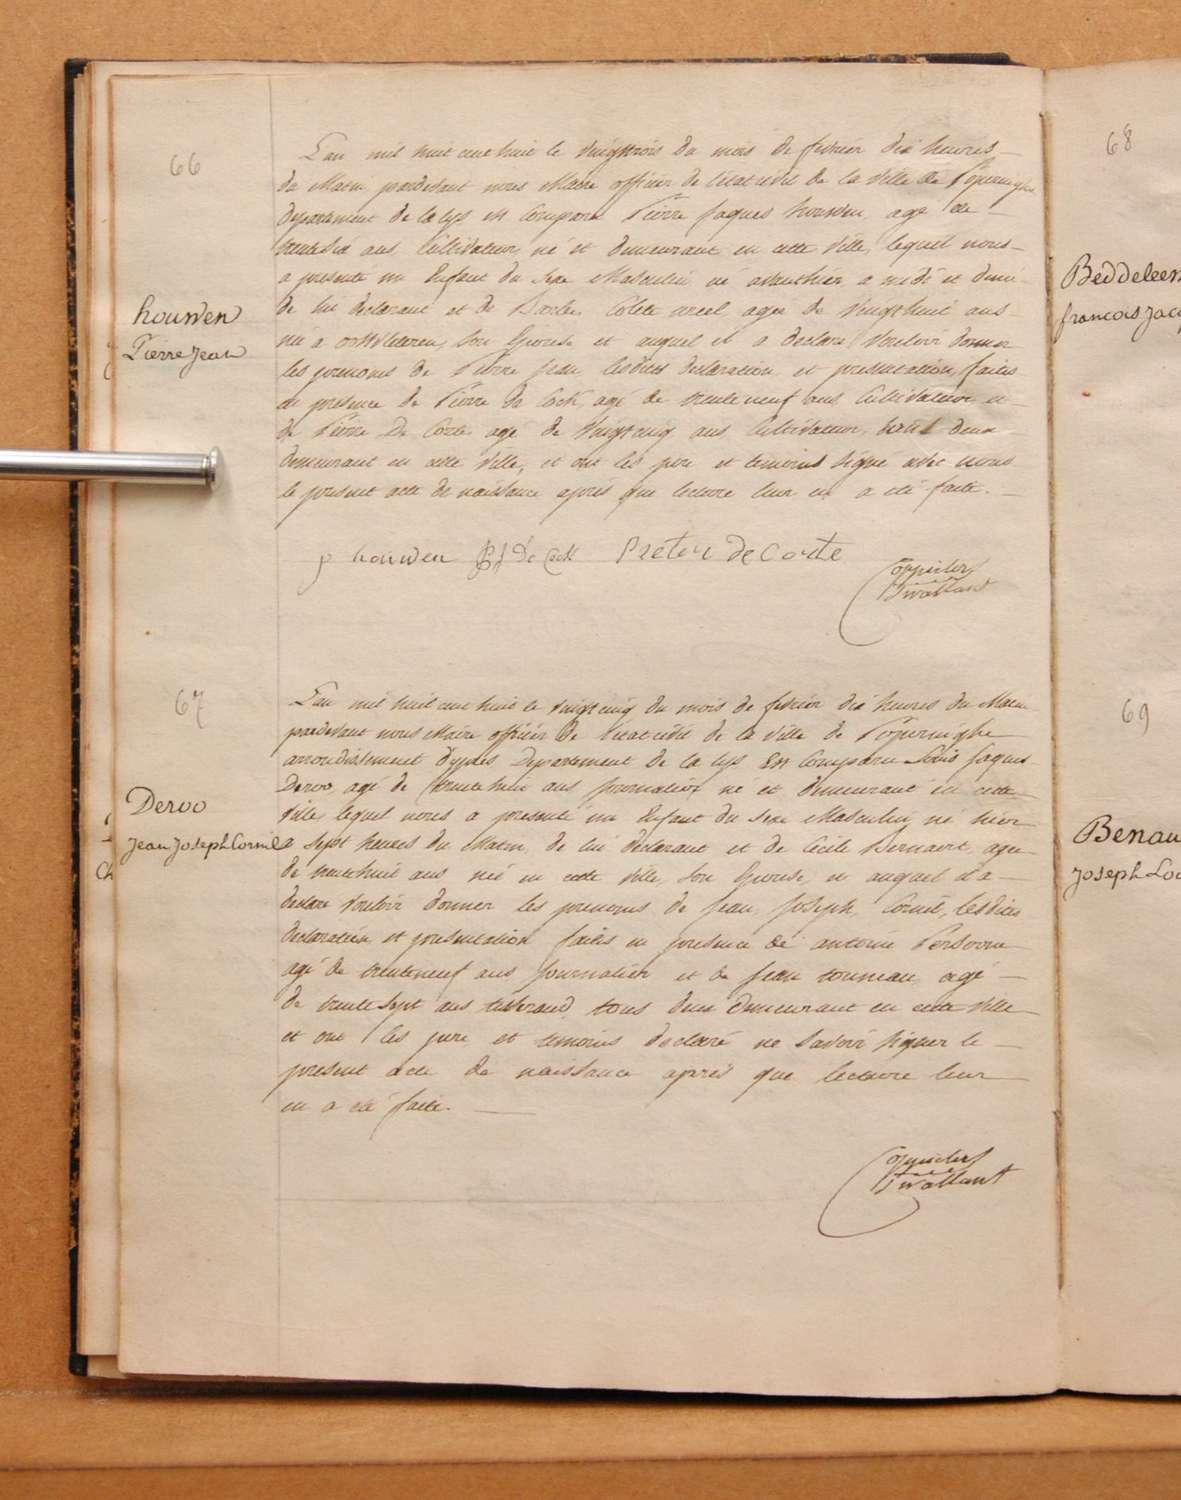 66
houwen
Pierre Jean
L'an mil huit cent huit le vingttrois du mois de fevrier dix heures
du Matin pardevant nous Maire officier de l'etat civil de la ville de Poperinghe
departement de la lys est Comparu Pierre Jaques houwen, agé de
trente six ans, Cultivateur, né et demeurant en cette ville, lequel nous
a presenté un Enfant du sexe Masculin né avanthier a midi et demi
de lui declarant et de Colete agée de vingthuit ans
née a son Epouse et auquel il a declaré vouloir donner
les prenoms de Pierre Jean lesdites declaration et presentation faites
en presence de Pierre de Cock, agé de trenteneuf ans Cultivateur et
de Pierre De Corte agé de vingtcinq ans Cultivateur, tous deux
demeurant en cette ville, et ont les pere et temoins signé avec nous
le present acte de naissance après que lecture leur en a été faite.
p houwen PJ De Cock Pieter de Corte
67
Dervo
Jean Joseph Cornil
L'an mil huit cent huit le vingtcinq du mois de fevrier dix heures du Matin
pardevant nous Maire officier de l'etat civil de la ville de Poperinghe
arrondissement d'ypres Departement de la lys Est Comparu Louis Jaques
Dervo, agé de trentehuit ans journalier né et demeurant en cette
ville, lequel nous a presenté un Enfant du sexe Masculin, né hier
a sept heures du Matin, de lui declarant et de Cécile Bernaert, agée
de trentehuit ans née en cette ville, son Epouse, et auquel il a
declaré vouloir donner les prenoms de Jean, Joseph, Cornil, lesdites
declaration et presentation faites en presence de antoine Persoone
agé de trenteneuf ans journalier et de Jean tonneau, agé
de trente sept ans tisserand, tous deux demeurant en cette ville
et ont les pere et temoins declaré ne savoir signer le
present acte de naissance après que lecture leur
en a été faite.
68
Beddeleem
francois Jacq
69
Benau
Joseph Lou